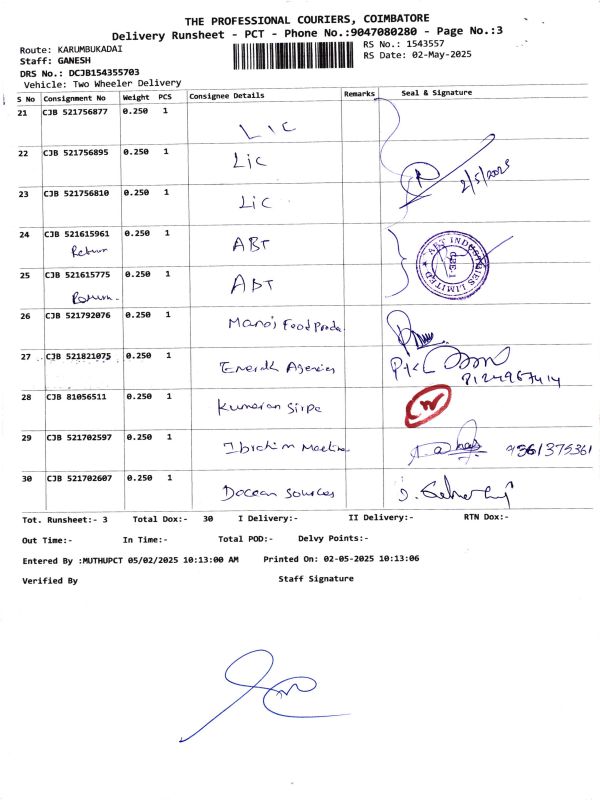 THE PROFESSIONAL COURIERS, COIMBATORE
Delivery Runsheet - PCT - Phone No.:9047080280 - Page No.:3
Route: KARUMBUKADAI
RS No.: 1543557
Staff: GANESH
RS Date: 02-May-2025
DRS No.: DCJB154355703
Vehicle: Two Wheeler Delivery
S No Consignment No Weight PCS Consignee Details Remarks Seal & Signature
21 CJB 521756877 0.250 1 LIC
22 CJB 521756895 0.250 1 Lic
2/5/2025
23 CJB 521756810 0.250 1 Lic
24 CJB 521615961 0.250 1 ABT
Return
ABT INDUSTRIES LIMITED
CBE-1
25 CJB 521615775 0.250 1 ABT
Return
26 CJB 521792076 0.250 1 Manoj Food Prods
27 CJB 521821075 0.250 1 Agencies
28 CJB 81056511 0.250 1 Kumaran
29 CJB 521702597 0.250 1 Ibrahim
30 CJB 521702607 0.250 1 Sources
Tot. Runsheet:- 3 Total Dox:- 30 I Delivery:- II Delivery:- RTN Dox:-
Out Time:- In Time:- Total POD:- Delvy Points:-
Entered By :MUTHUPCT 05/02/2025 10:13:00 AM Printed On: 02-05-2025 10:13:06
Verified By Staff Signature